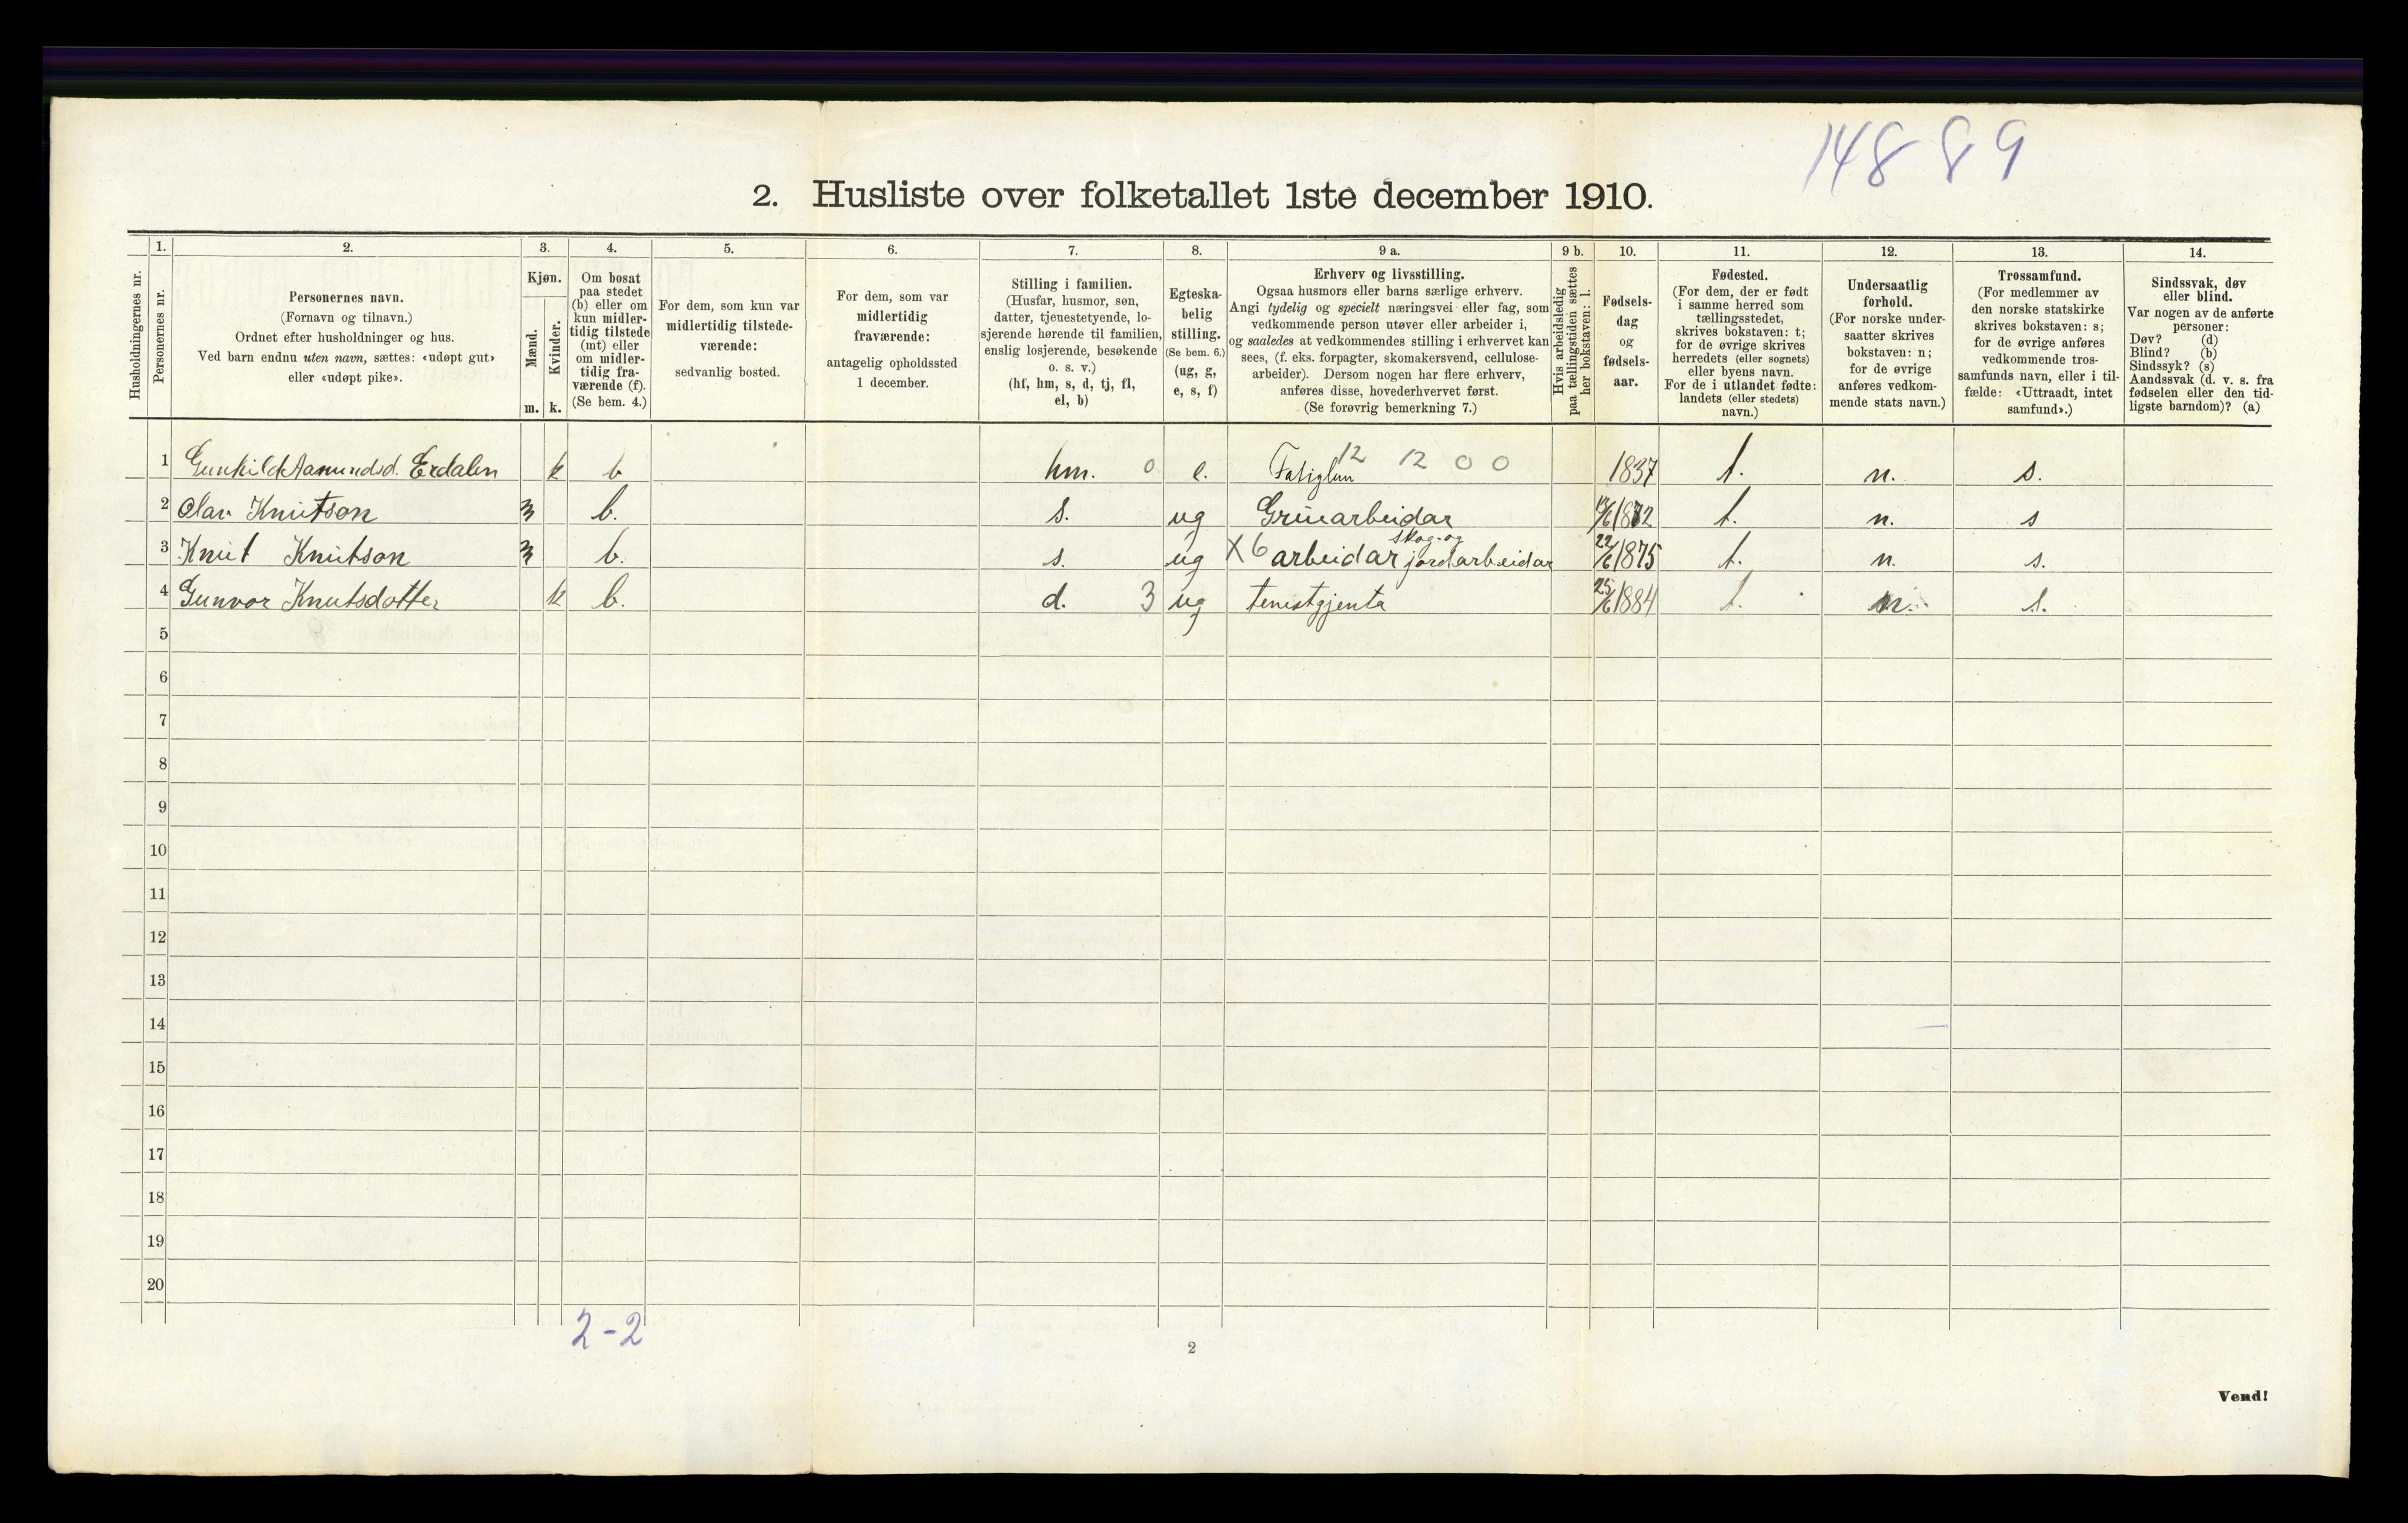 14889
2. Husliste over folketallet 1ste december 1910.
Husholdningernes nr.
1.
Personernes nr.
2.
Personernes navn.
(Fornavn og tilnavn.)
Ordnet efter husholdninger og hus.
Ved barn endnu uten navn, sættes: «udøpt gut»
eller «udøpt pike».
3.
Kjøn.
Mænd.
Kvinder.
m. k.
4.
Om bosat
paa stedet
(b) eller om
kun midler-
tidig tilstede
(mt) eller
om midler-
tidig fra-
værende (f).
(Se bem. 4.)
5.
For dem, som kun var
midlertidig tilstede-
værende:
sedvanlig bosted.
6.
For dem, som var
midlertidig
fraværende:
antagelig opholdssted
1 december.
7.
Stilling i familien.
(Husfar, husmor, søn,
datter, tjenestetyende, lo-
sjerende hørende til familien,
enslig losjerende, besøkende
o. s. v.)
(hf, hm, s, d, tj, fl,
el, b)
8.
Egteska-
belig
stilling.
(Se bem. 6.)
(ug, g,
e, s, f)
9 a.
Erhverv og livsstilling.
Ogsaa husmors eller barns særlige erhverv.
Angi tydelig og specielt næringsvei eller fag, som
vedkommende person utøver eller arbeider i,
og saaledes at vedkommendes stilling i erhvervet kan
sees, (f. eks. forpagter, skomakersvend, cellulose-
arbeider). Dersom nogen har flere erhverv,
anføres disse, hovederhvervet først.
(Se forøvrig bemerkning 7.)
9 b.
Hvis arbeidsledig
paa tællingstiden sættes
her bokstaven: l.
10.
Fødsels-
dag
og
fødsels-
aar.
11.
Fødested.
(For dem, der er født
i samme herred som
tællingsstedet,
skrives bokstaven: t;
for de øvrige skrives
herredets (eller sognets)
eller byens navn.
For de i utlandet fødte:
landets (eller stedets)
navn.)
12.
Undersaatlig
forhold.
(For norske under-
saatter skrives
bokstaven: n;
for de øvrige
anføres vedkom-
mende stats navn.)
13.
Trossamfund.
(For medlemmer av
den norske statskirke
skrives bokstaven: s;
for de øvrige anføres
vedkommende tros-
samfunds navn, eller i til-
fælde: «Uttraadt, intet
samfund».)
14.
Sindssvak, døv
eller blind.
Var nogen av de anførte
personer:
Døv? (d)
Blind? (b)
Sindssyk? (s)
Aandssvak (d. v. s. fra
fødselen eller den tid-
ligste barndom)? (a)
12 12 0 0
1 Gunhild Aamundsd. Erdalen k b hm. 0 e. 1837 t. n. s.
2 Olav Knutson m b. s. ug Gruearbeidar 1872 t. n. s
skog-og
3 Knut Knutson m b. s. ug X6 arbeidar jordarbeidar 22/6 1875 t. n. s.
4 Gunvor Knutsdotter k b. d. 3 ug tenestgjenta 25/6 1884 t. n. s.
5
6
7
8
9
10
11
12
13
14
15
16
17
18
19
20
2-2
2
Vend!